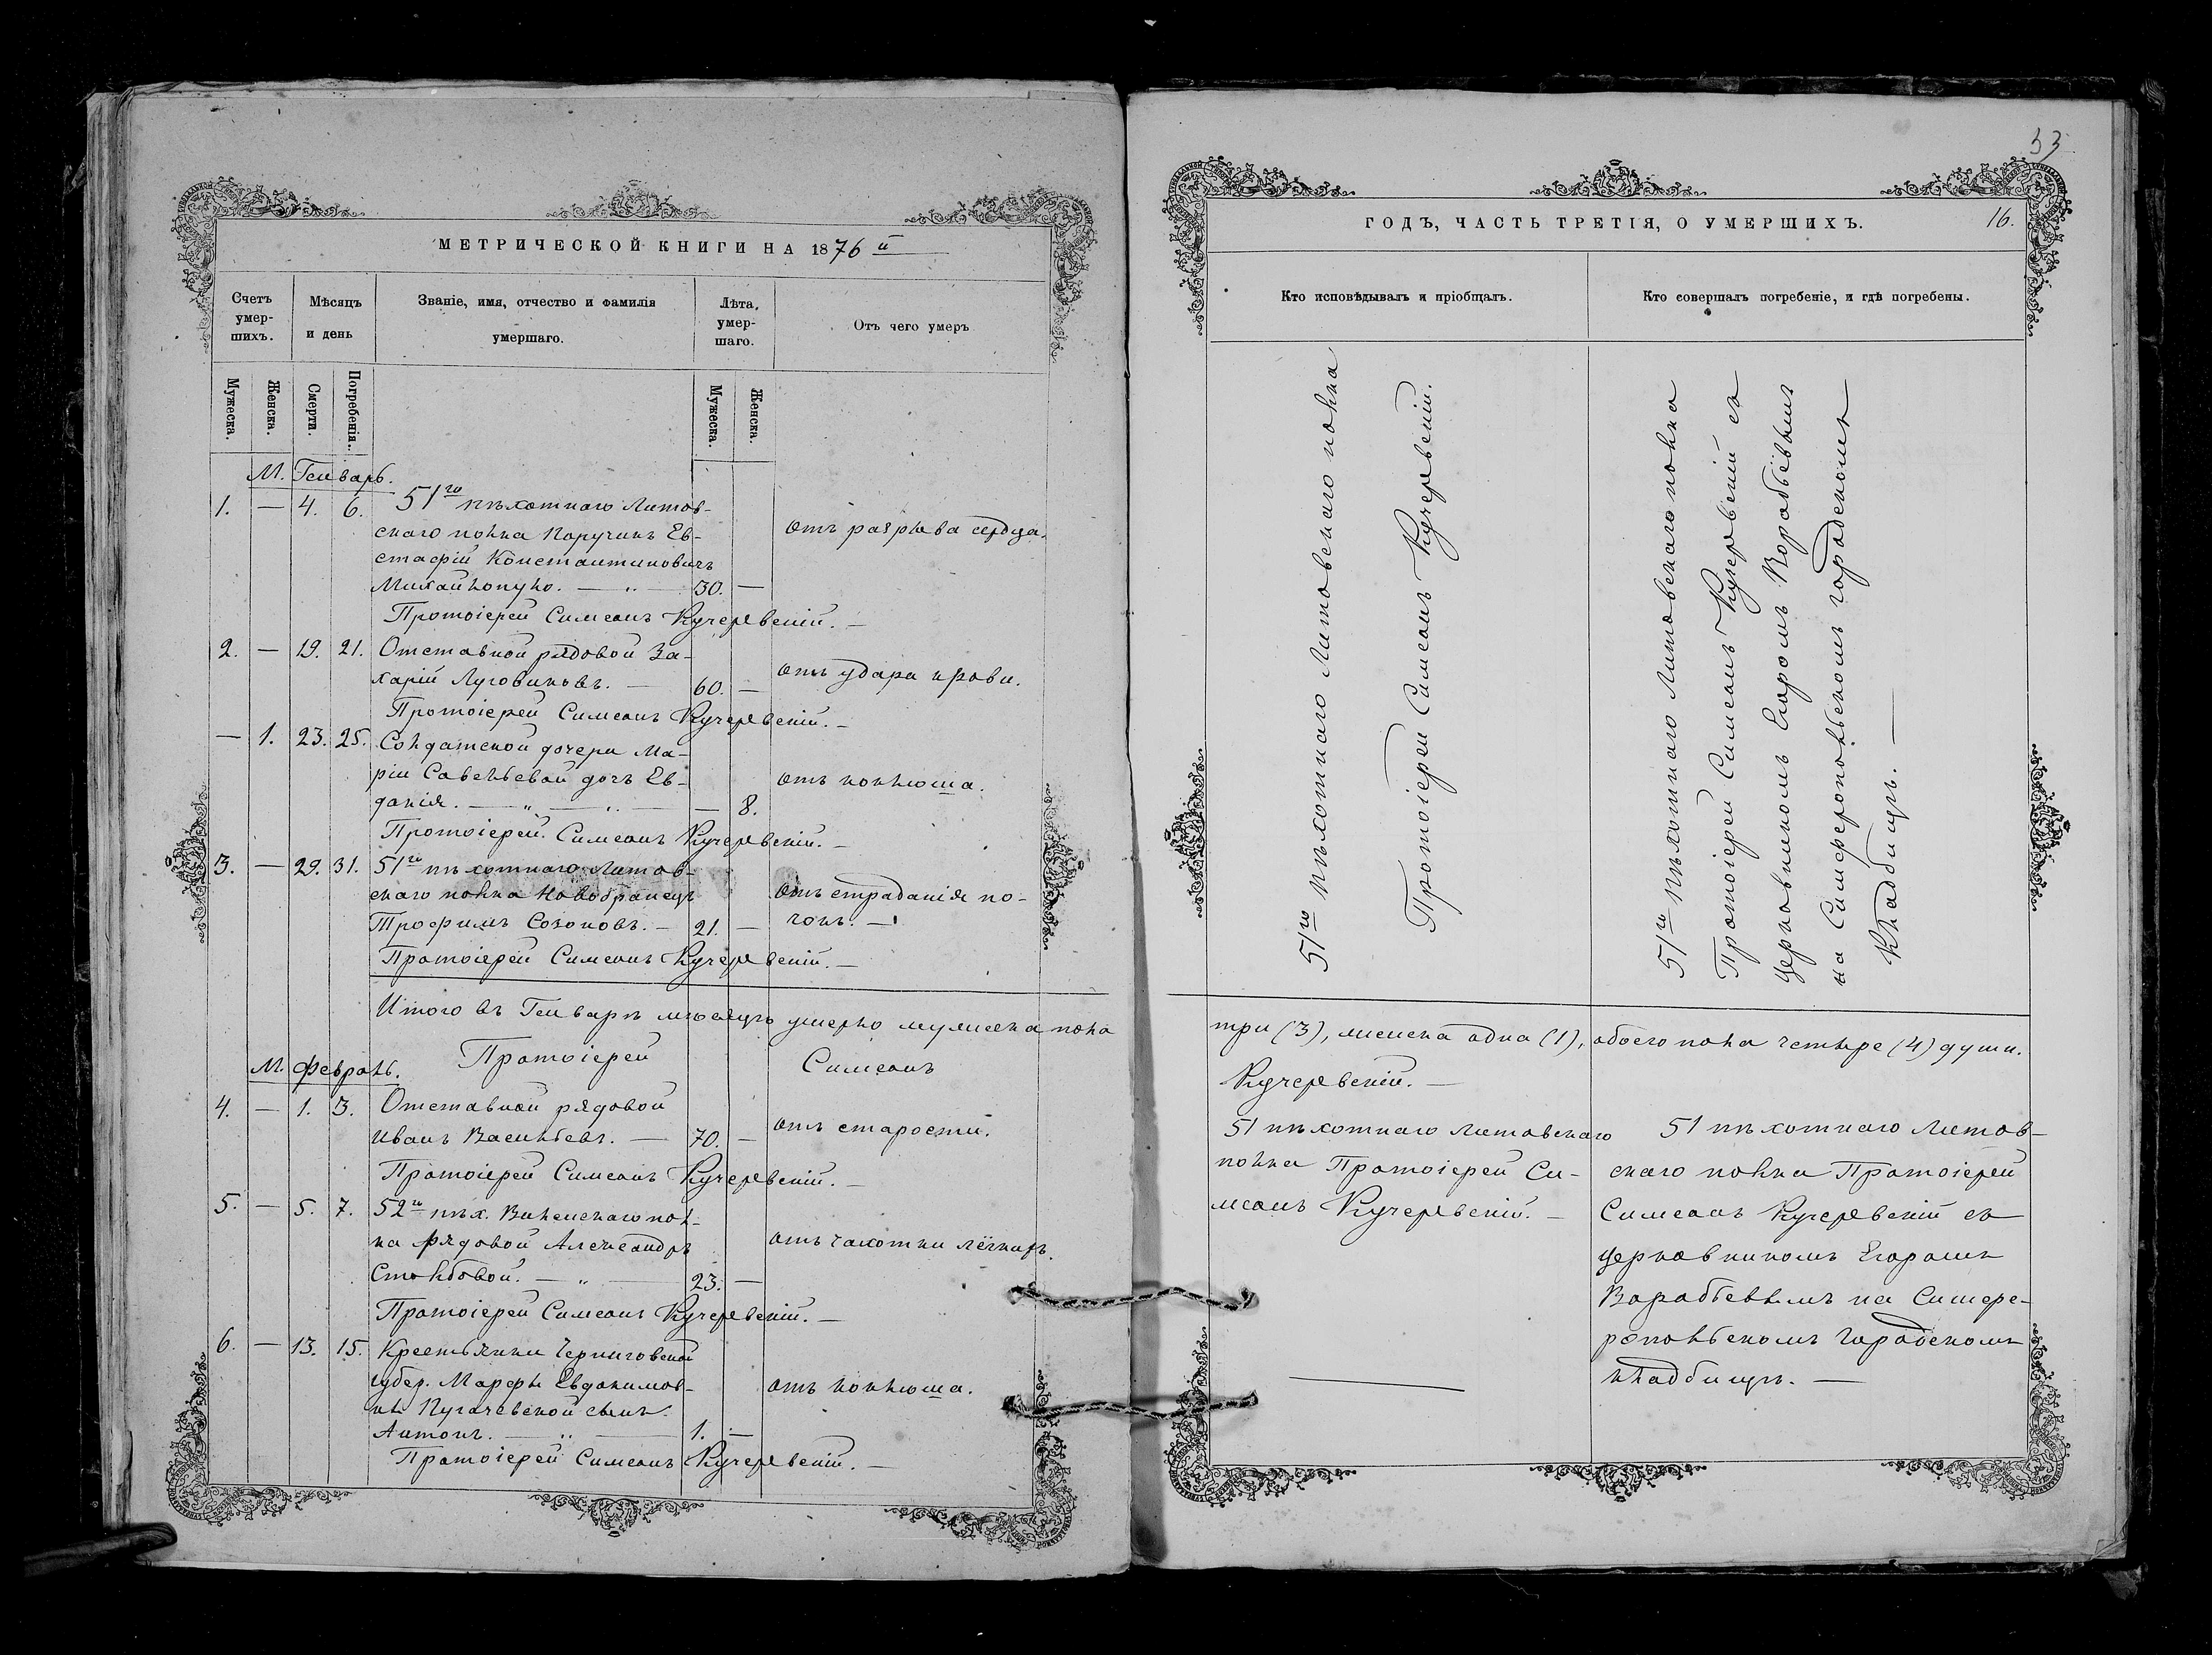 МЕТРИЧЕСКОЙ КНИГИ НА 1876й
Счетъ умер-шихъ.
Мѣсяцъ и день
Званіе, имя, отчество и фамилія умершаго.
Лѣта, умер-шаго.
Отъ чего умеръ
Мужеска.
Женска.
Смерти.
Погребенія.
Мужеска.
Женска.
М. Генварь.
1. — 4. 6. 51го пѣхотнаго Литов-
скаго полка Поручикъ Ев-
стафій Константиновичъ
— 30. —
отъ разрыва сердца.
Протоіерей Симеонъ Кучеревскій. —
2. — 19. 21. Отставной рядовой За-
харій Луговиковъ. — 60. —
отъ удара крови.
Протоіерей Симеонъ Кучеревскій. —
— 1. 23. 25. Солдатской дочери Ма-
ріи Савельевой дочь Ев-
докія. — „ — „ — — 8.
отъ коклюша.
Протоіерей Симеонъ Кучеревскій. —
3. — 29. 31. 51го пѣхотнаго Литов-
скаго полка Новобранецъ
Трофимъ Созоновъ. — 21. —
отъ страданія по-
чокъ. —
Протоіерей Симеонъ Кучеревскій. —
Итого въ Генварѣ мѣсяцѣ умерло мужеска пола
Протоіерей Симеонъ
М. Февраль.
4. — 1. 3. Отставной рядовой
Иванъ Васильевъ. — 70. —
отъ старости.
Протоіерей Симеонъ Кучеревскій. —
5. — 5. 7. 52го пѣх. Виленскаго пол-
ка рядовой Александръ
Столбовой. — „ — 23. —
отъ чахотки лёгкихъ.
Протоіерей Симеонъ Кучеревскій. —
6. — 13. 15. Крестьянки Черниговской
губер. Марфы Евдокимов-
ны Пугачевской сынъ
Антонъ. — „ — 1. —
отъ коклюша.
Протоіерей Симеонъ Кучеревскій. —
33
ГОДЪ, ЧАСТЬ ТРЕТІЯ, О УМЕРШИХЪ.
16.
Кто исповѣдывалъ и пріобщалъ.
Кто совершалъ погребеніе, и гдѣ погребены.
51го пѣхотнаго Литовскаго полка
Протоіерей Симеонъ Кучеревскій.
51го пѣхотнаго Литовскаго полка
Протоіерей Симеонъ Кучеревскій съ
церковникомъ Егоромъ Воробьёвымъ
на Симферопольскомъ городскомъ
кладбищѣ. —
три (3), женска одна (1), обоего пола четыре (4) души.
Кучеревскій. —
51 пѣхотнаго Литовскаго
полка Протоіерей Си-
меонъ Кучеревскій. —
51 пѣхотнаго Литов-
скаго полка Протоіерей
Симеонъ Кучеревскій съ
церковникомъ Егоромъ
Воробьевымъ на Симфе-
ропольскомъ городскомъ
кладбищѣ. —